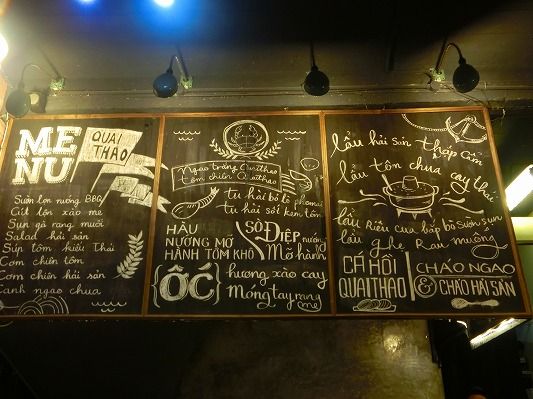 MENU
QUAI THAO
Sườn lợn nướng BBQ
Cút lộn xào me
Sụn gà rang muối
Salad hải sản
Súp tôm kiểu Thái
Cơm chiên tôm
Cơm chiên hải sản
Canh ngao chua
Ngao trắng Quaithao
Tôm chiên Quaithao
tu hài bỏ lò phomai
tu hài sốt kem tôm
HÀU
NƯỚNG MỠ
HÀNH TÔM KHÔ
SÒ ĐIỆP nướng
Mỡ hành
ỐC hương xào cay
Móng tay rang me
lẩu hải sản thập cẩm
lẩu tôm chua cay thái
lẩu Riêu cua bắp bò sườn sụn
lẩu ghẹ Rau muống
CÁ HỒI
QUAITHAO
CHÁO NGAO
& CHÁO HẢI SẢN